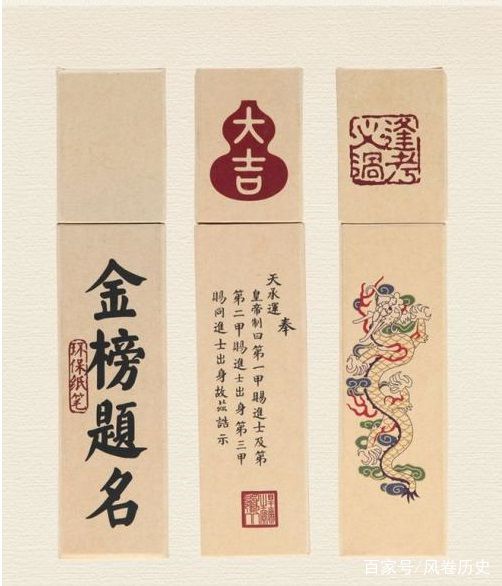 大吉
逢考
必過
金榜題名
环保纸笔
奉
天承運
皇帝制曰第一甲賜進士及第
第二甲賜進士出身第三甲
賜同進士出身故茲誥示
百家号/风卷历史